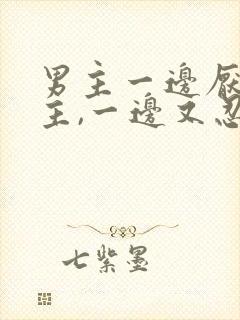 男主一邊厭
主,一邊又忍
七紫墨